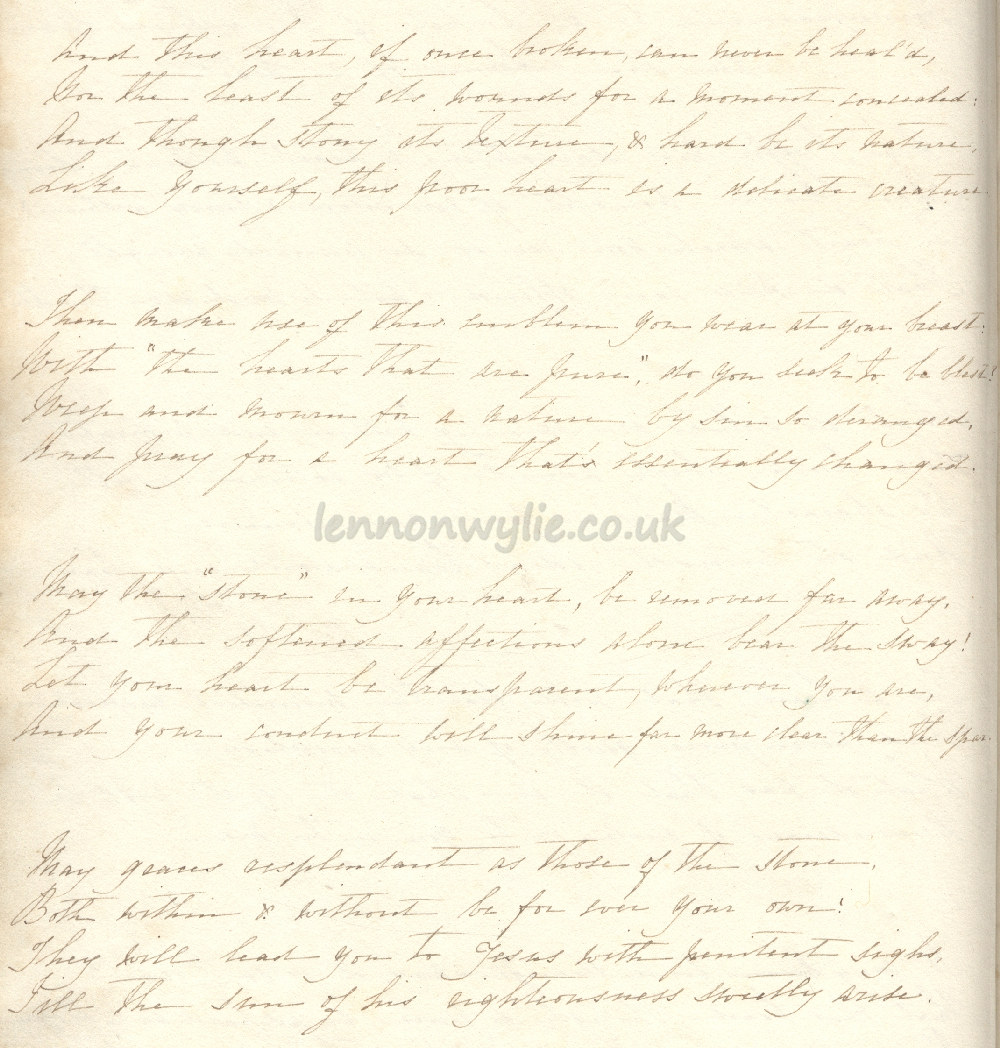 And this heart, if once broken, can never be heal'd,
Nor the least of its wounds for a moment concealed:
And though stony its texture, & hard be its nature,
Like yourself, this poor heart is a delicate creature.
Then make use of this emblem you wear at your breast:
With "the hearts that are pure", do you seek to be blest!
Weep and mourn for a nature by sin so deranged,
And pray for a heart that's essentially changed.
May the "stone" in your heart, be removed far away,
And the softened affections alone bear the sway!
Let your heart be transparent, wherever you are,
And your conduct will shine far more clear than the spar.
lennonwylie.co.uk
May graces resplendant as those of the stone,
Both within & without be for ever your own!
They will lead you to Jesus with penitent sighs,
Till the sun of his righteousness sweetly arise.